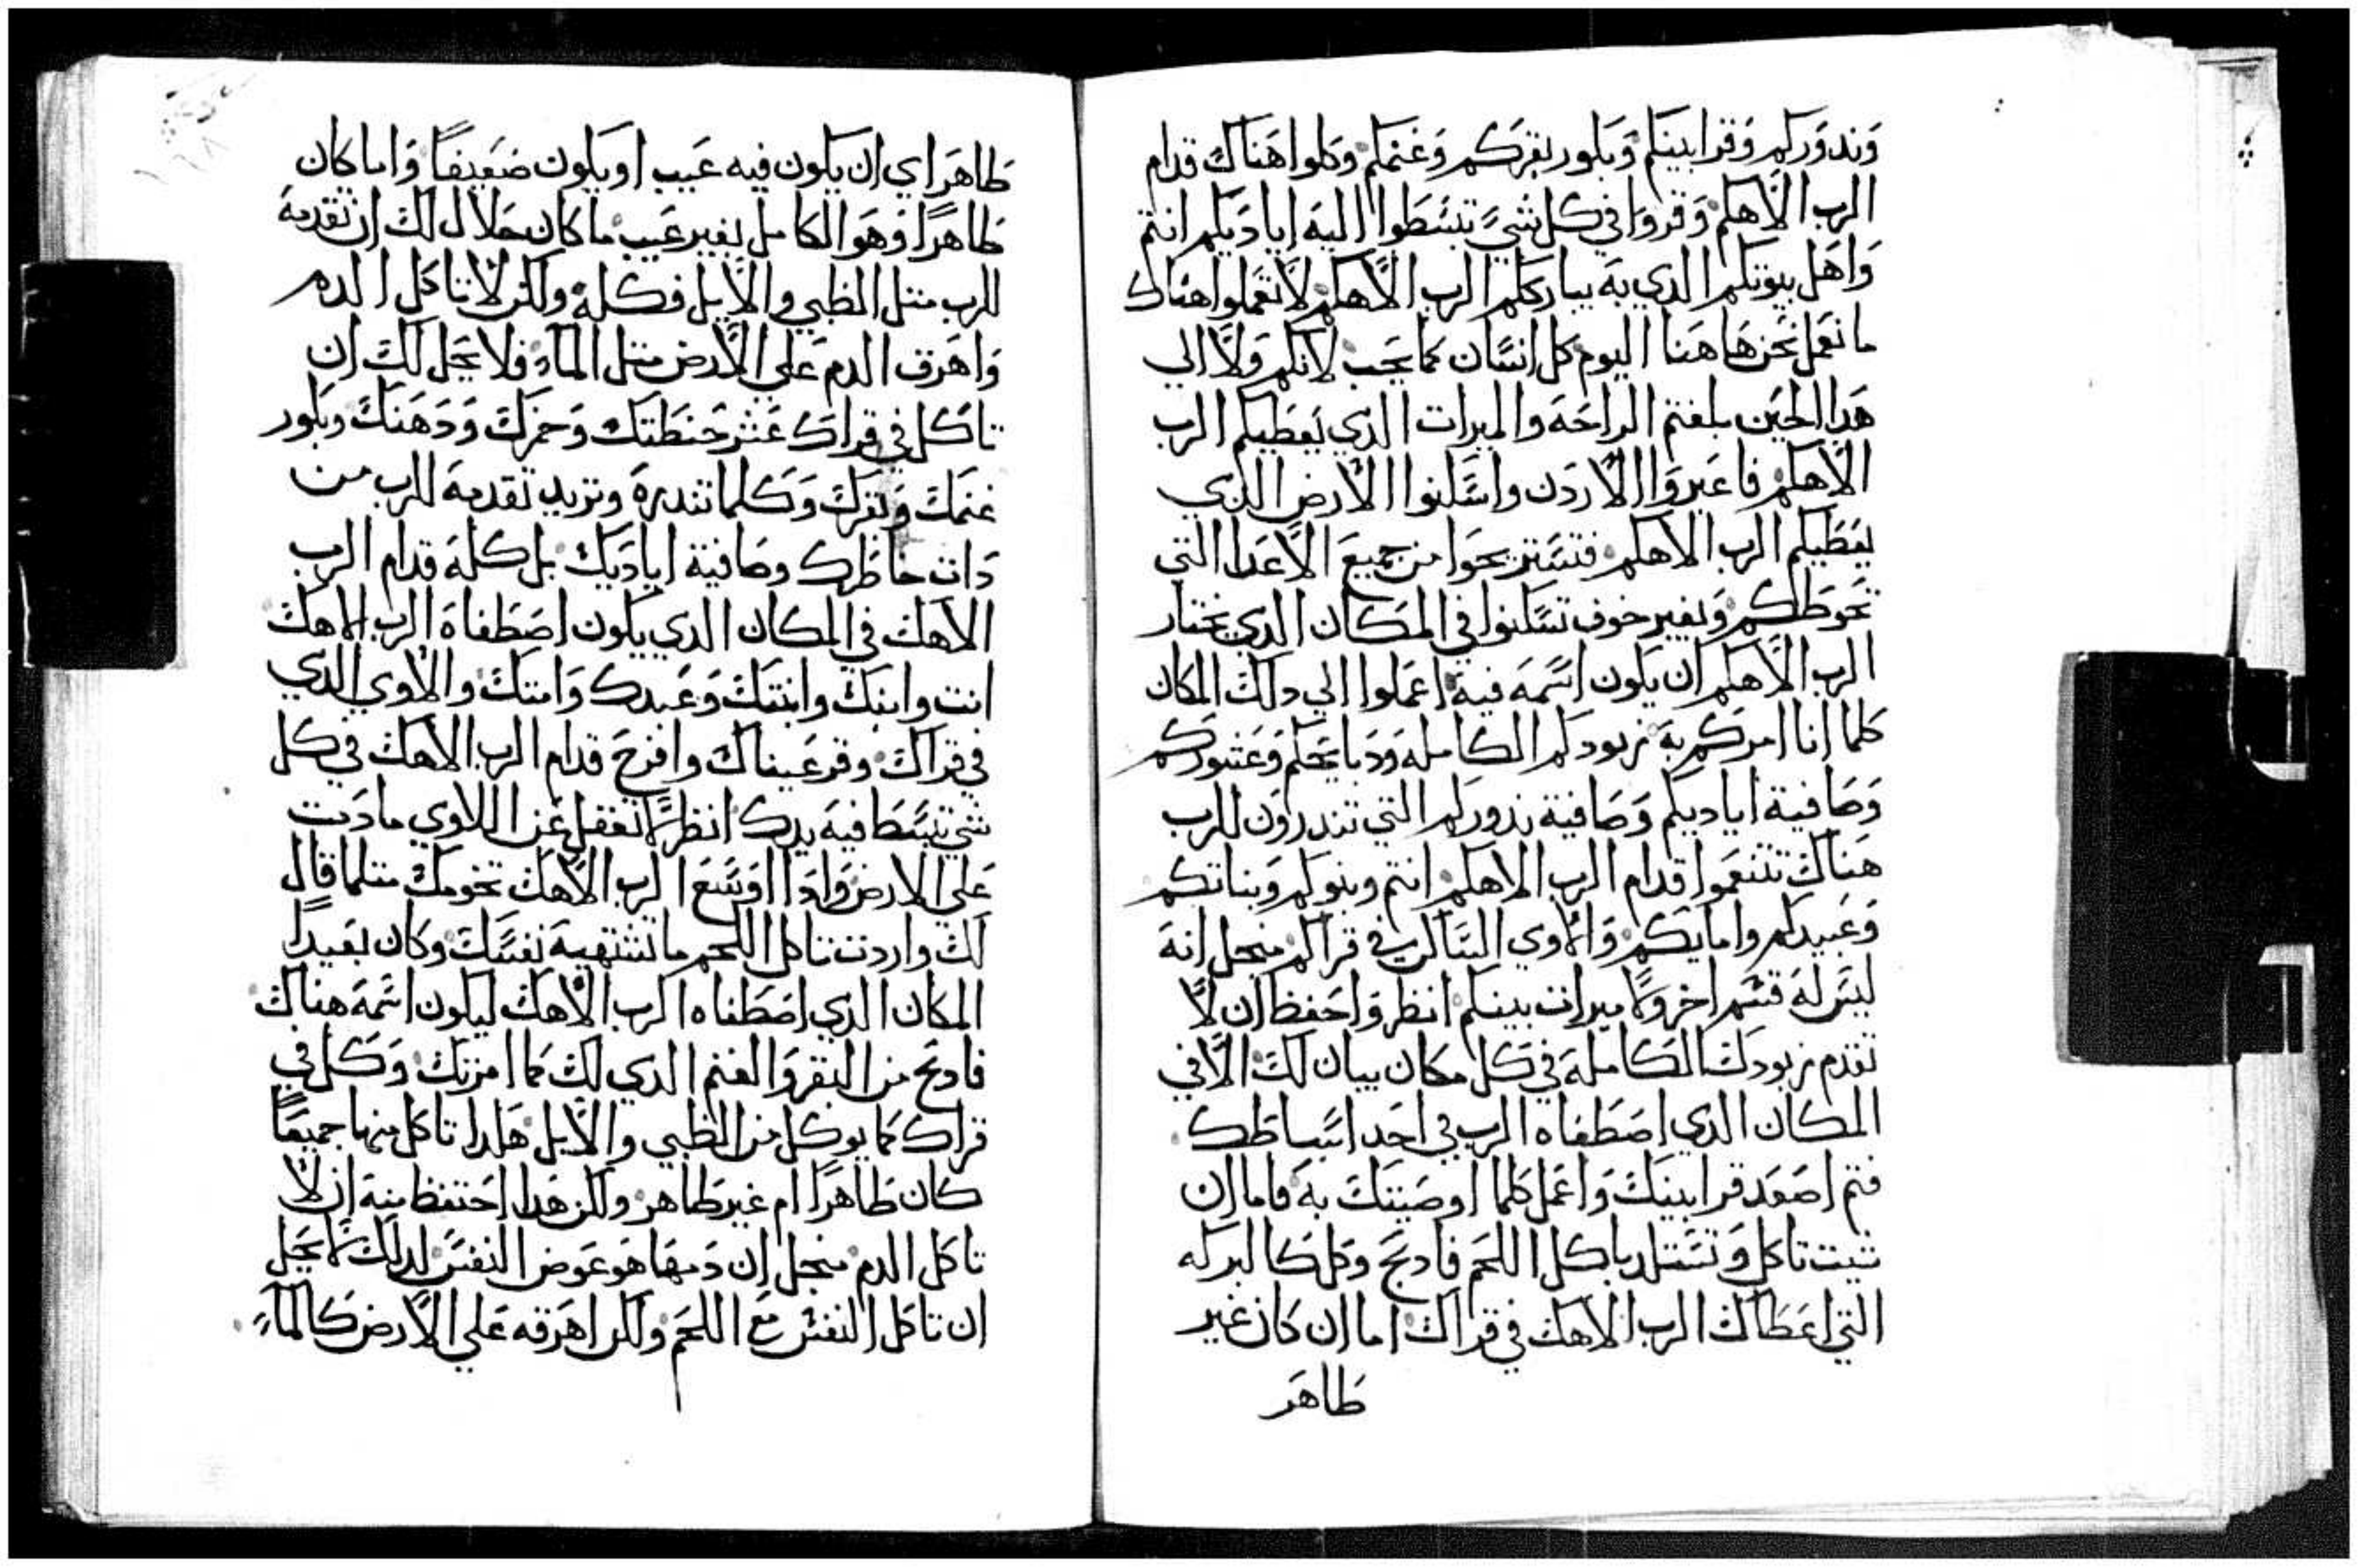 وَندوَركم وَقرابينكم وَبكور بقركم وَغنمكم وكلوا هَناك قدام
الرب الاهكم وَقروا في كل شيَ تبسَطوا اليه اياديكم انتم
وَاهَل بيوتكم الدي به يبارككم الرب الاهكم لا تعَملوا هناك
ما نعَمل نحن هَاهَنا اليوم كل انسَان كما يحب لانكم وَلا الي
هَدا الحين بلغتم الراحَة والميرات الدي يَعَطيكم الرب
الاهكم فاعَبروَا الاردَن واسَكنوا الارض الدي
يعَطيكم الرب الاهكم فتسَتريحوَا من جميعَ الاعَدا التي
تحوَطكم وَبغير خوف تسَكنوا في المكان الدي يختار
الرب الاهكم ان يكون اسَمه فيه اعَملوا الي دلك المكان
كلما انا امركم به زبودكم الكامله وَدبايحكم وَعَشوركم
وَصَافية اياديكم وَصَافية ندوركم التي تندروَن للرب
هَناك تتنعَموا قدام الرب الاهكم انتم وبنوكم وَبناتكم
وَعَبيدكم وامايكم وَالاوي السَاكن في قراكم منجل انه
ليسَ له قسَم اخر ولا ميرات بينكم انظر وَاحَفظ ان لا
تقدم زبودكَ الكاملة في كل مكان يبان لك الا في
المكان الدي اصَطفاه الرب في احَد اسَباطك
فتم اصَعَد قرابينك وَاعَمل كلما اوصَيتك به فاما ان
شيت تاكل وَتسَتلد باكل اللحَم فادبَح وَكل كالبركه
التي اعَطاك الرب الاهك في قراك اما ان كان غير
طاهَر
طاهَرا اي ان يكون فيه عَيب او يكون ضَعَيفاً وَاما كان
طاهَراً وَهَوَ الكامل بغير عَيب ما كان حَلال لك ان تقدمه
للرب متل الظبي والايل فكله ولكن لا تاكل الدم
وَاهَرق الدم عَلي الارض متل الماء فلا يحَل لكَ ان
تاكل في قراك عَشر حَنطتك وَخمرك وَدَهَنك وبكور
غنمكَ وَبقرك وَكلما تندره وتريد تقدمه للرب من
دَات خاطرك وصَافية اياديك بل كله قدام الرب
الاهك في المكان الدي يكون اصَطفاه الرب الاهك
انت وابنك وابنتك وَعَبدك وَامتك والاوي الدي
في قراك وقر عَيناك وافرح قدام الرب الاهك في كل
شي تبسَط فيه يدك انظر لا تغفل عَن اللاوي ما دَمت
عَلي الارض وَادَا اوسَع الرب الاهَك تخومك متلما قال
لك واردت تاكل اللحم ما تشتهيه نفسَك وكان بعَيداً
المكان الدي اصَطفاه الرب الاهك ليكون اسَمه هناك
فادبَح من البقر وَالغنم الدي لك كما امرتك وَكل في
قراك كما يوكل من الظبي والايل هَكدا تاكل منها جميعَاً
كان طاهَراً ام غير طاهر ولكن هَدا احَتفظ منه ان لا
تاكل الدم منجل ان دَمها هَو عَوض النفسَ لدلك لا يحَل
ان تاكل النفسَ معَ اللحَم ولكن اهَرقه عَلي الارض كالماء